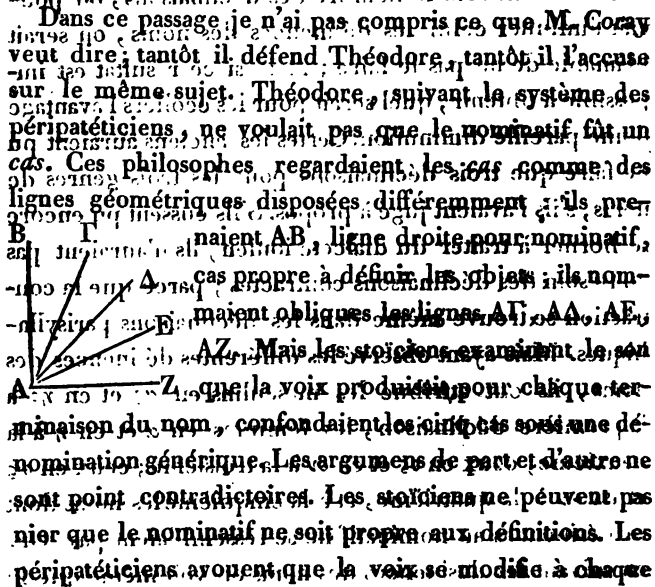 Dans ce passage je n'ai pas compris ce que M. Coray
veut dire; tantôt il défend Théodore, tantôt il l'accuse
sur le même sujet. Théodore, suivant le système des
péripatéticiens, ne voulait pas que le nominatif fût un
cas. Ces philosophes regardaient les cas comme des
lignes géométriques disposées différemment; ils pre-
B Γ naient AB, ligne droite pour nominatif,
Δ cas propre à définir les objets; ils nom-
maient obliques les lignes ΑΓ, ΑΔ, ΑΕ,
E AZ. Mais les stoïciens examinant le son
A Z que la voix produisit pour chaque ter-
minaison du nom, confondaient les cinq cas sous une dé-
nomination générique. Les argumens de part et d'autre ne
sont point contradictoires. Les stoïciens ne peuvent pas
nier que le nominatif ne soit propre aux définitions. Les
péripatéticiens avouent que la voix se modifie à chaque